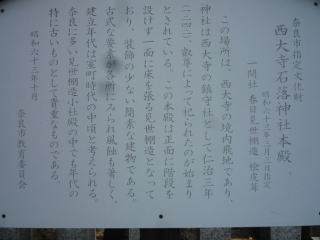 奈良市指定文化財
西大寺石落神社本殿、
昭和六十三年三月三日指定
一間社 春日見世棚造 桧皮葺
この場所は、西大寺の境内飛地であり、
神社は西大寺の鎮守社として仁治三年
(一二四二)、叡尊によって祀られたのが始まり
とされている。この本殿は正面に階段を
設けず一面に床を張る見世棚造となって
おり、装飾の少ない簡素な建物である。
古式な要素が各所にみられ風蝕も著しく、
建立年代は室町時代の中頃と考えられる。
奈良に多い見世棚造小社殿の中でも年代の
特に古いものとして貴重なものである。
昭和六十三年十月
奈良市教育委員会